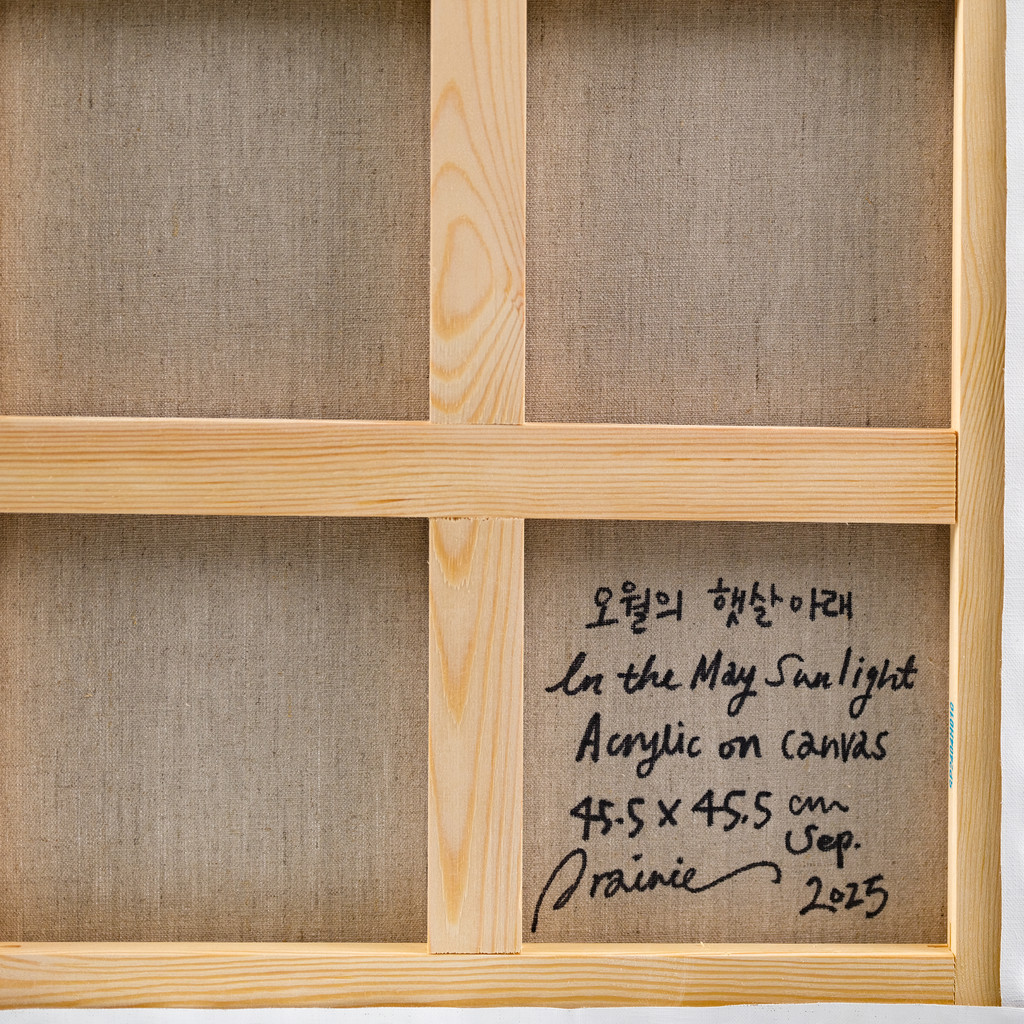 오월의 햇살 아래
In the May Sunlight
Acrylic on canvas
45.5 x 45.5 cm
Sep.
Prairie 2025